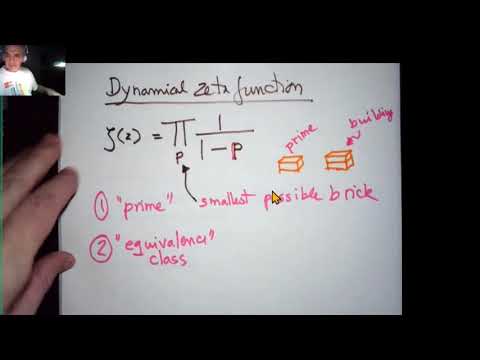 Dynamial zeta function
ζ(z) = ∏ 1/(1-p)
p
prime
building
① "prime" smallest possible brick
② "equivalence"
class